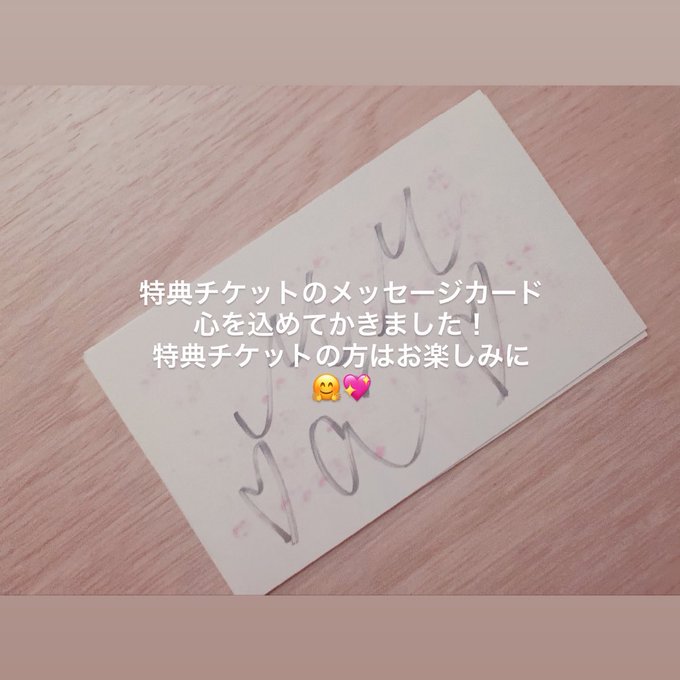 特典チケットのメッセージカード
心を込めてかきました！
特典チケットの方はお楽しみに
🤗💖